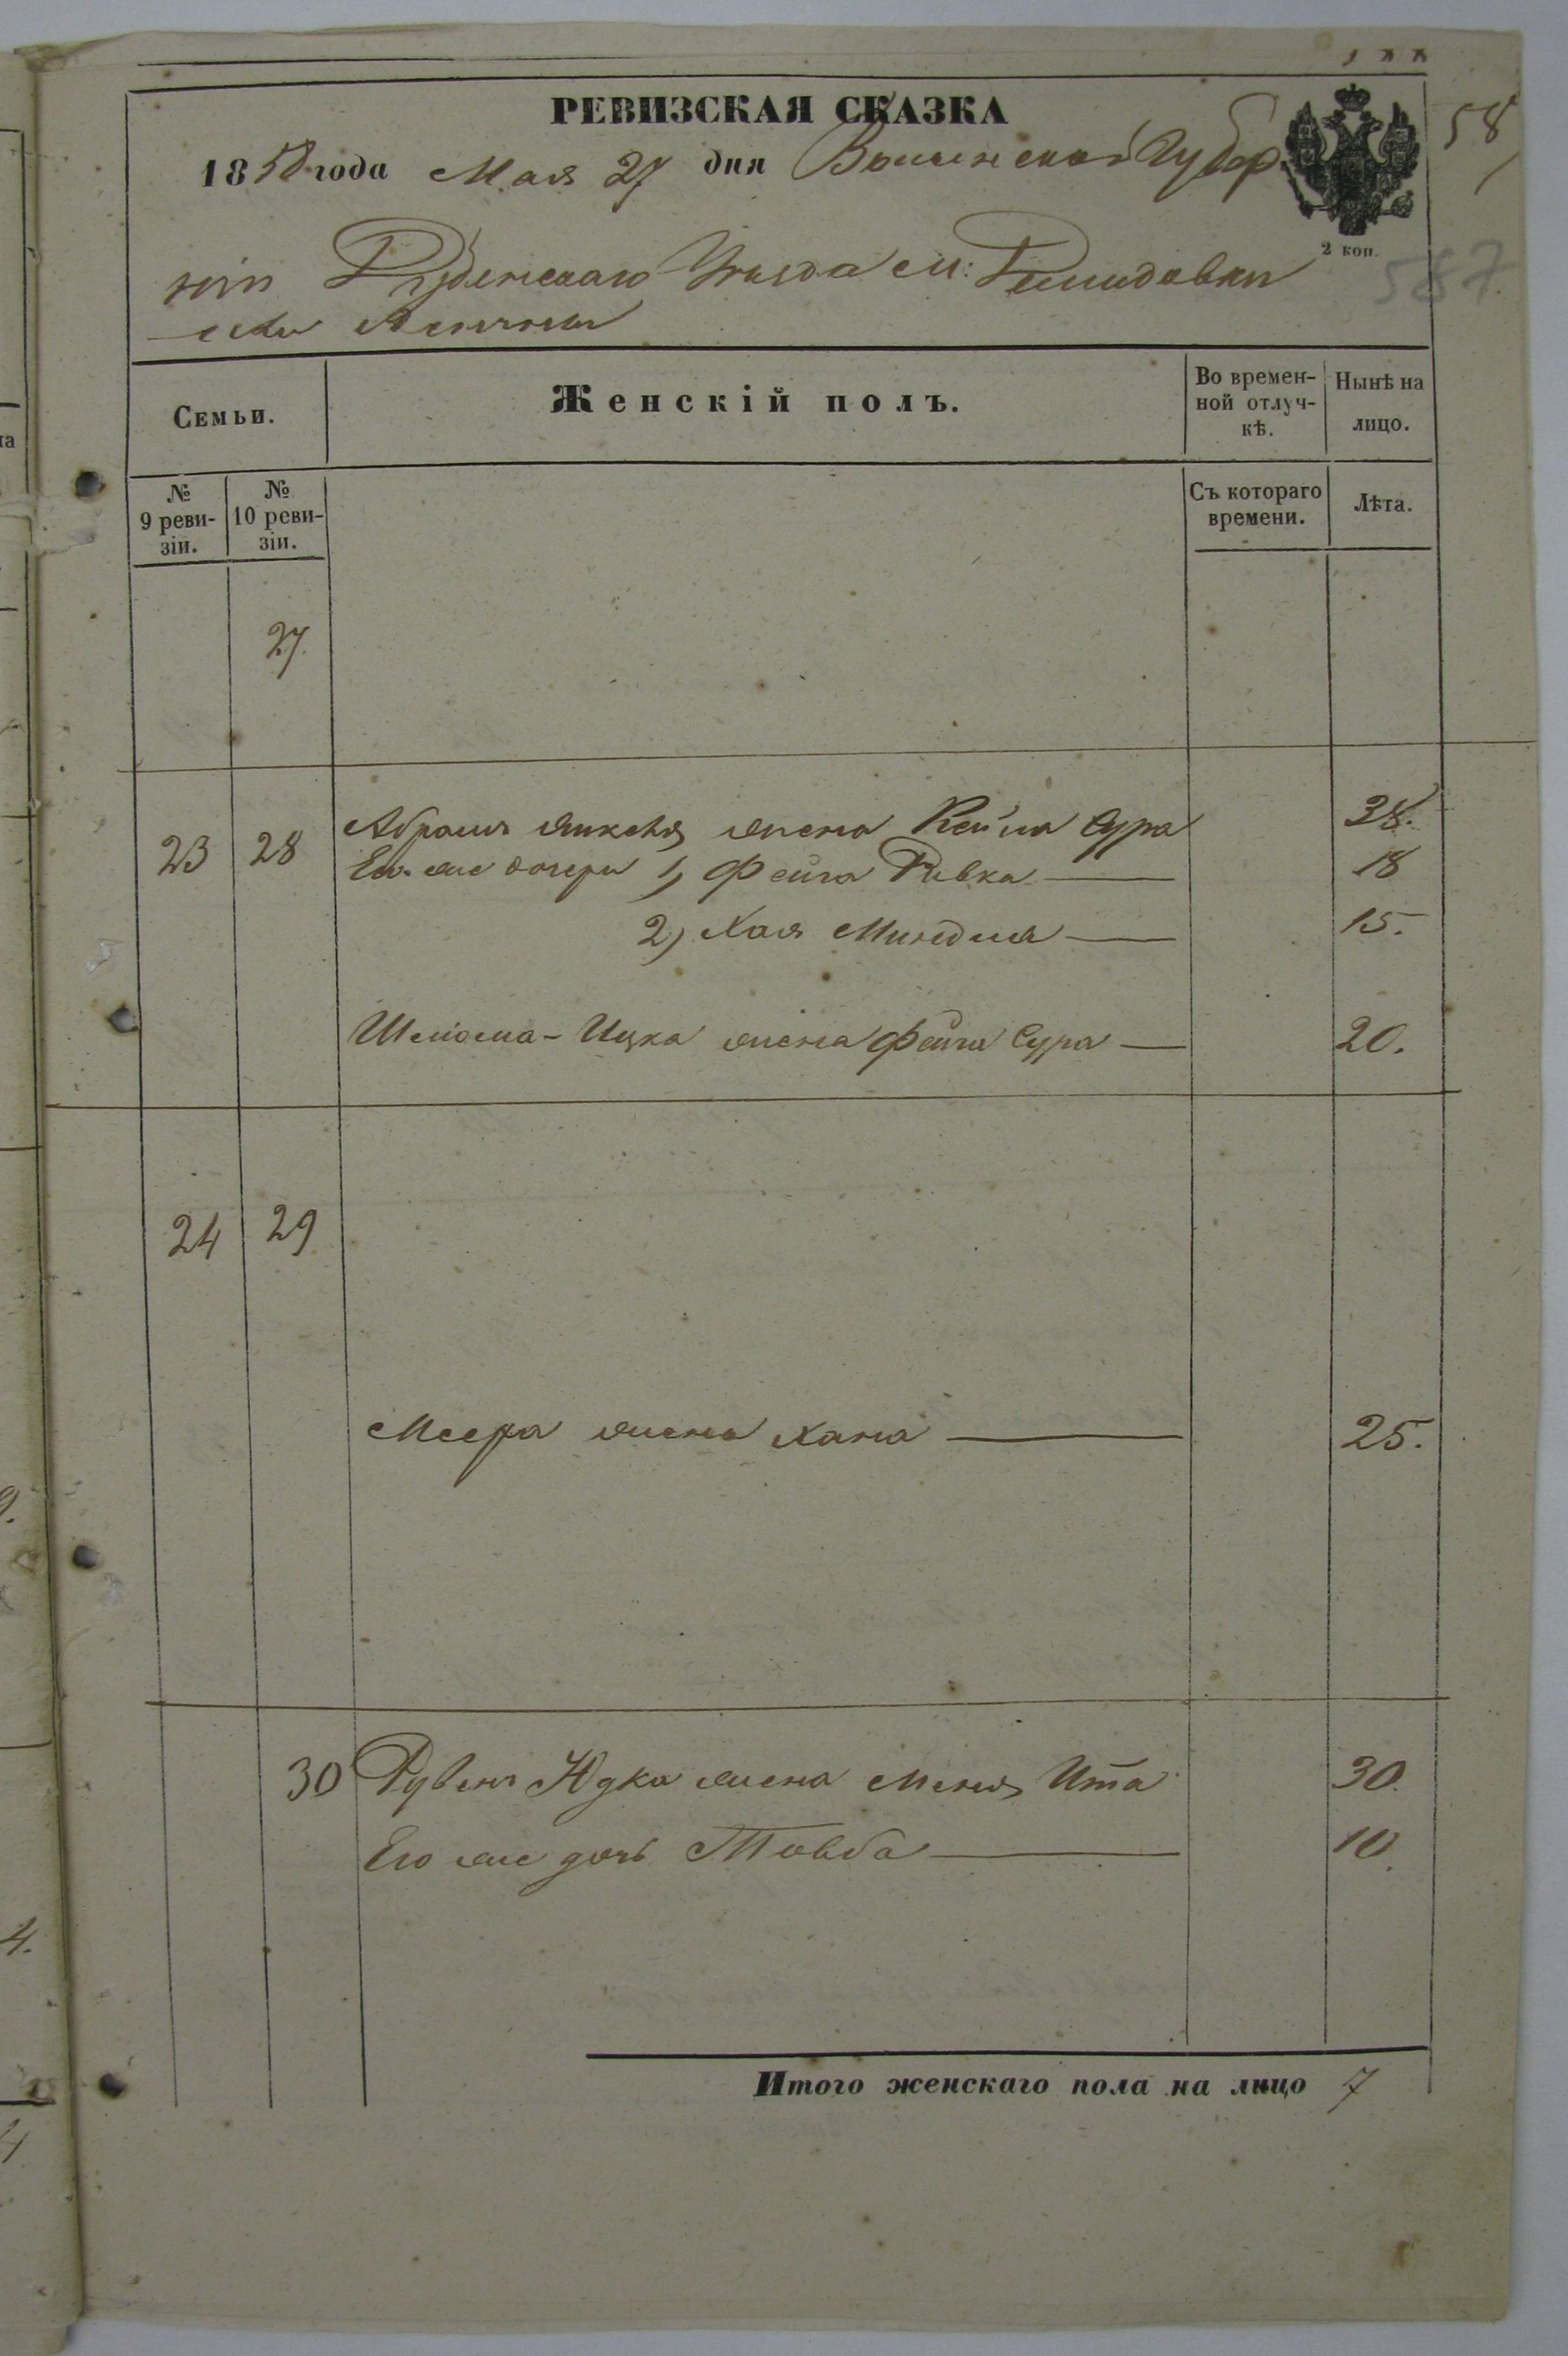 РЕВИЗСКАЯ СКАЗКА
1858 года Мая 27 дня Волынской Губер
58
2 коп.
587
ніи Ровенскаго Уѣзда м:
Семьи.
Женскій полъ.
Во времен-
ной отлуч-
кѣ.
Нынѣ на
лицо.
№
9 реви-
зіи.
№
10 реви-
зіи.
Съ котораго
времени.
Лѣта.
27.
23 28 Абрамъ жена Сура 38.
Его же дочери 1, Фейга Ривка 18
2, Хая Миндля 15.
Шліома-Ицка жена Фейга Сура 20.
24 29
Меера жена Хана 25.
30 Рувенъ Юдка жена Меня Ита 30.
Его же дочь Товба 10.
Итого женскаго пола на лицо 7